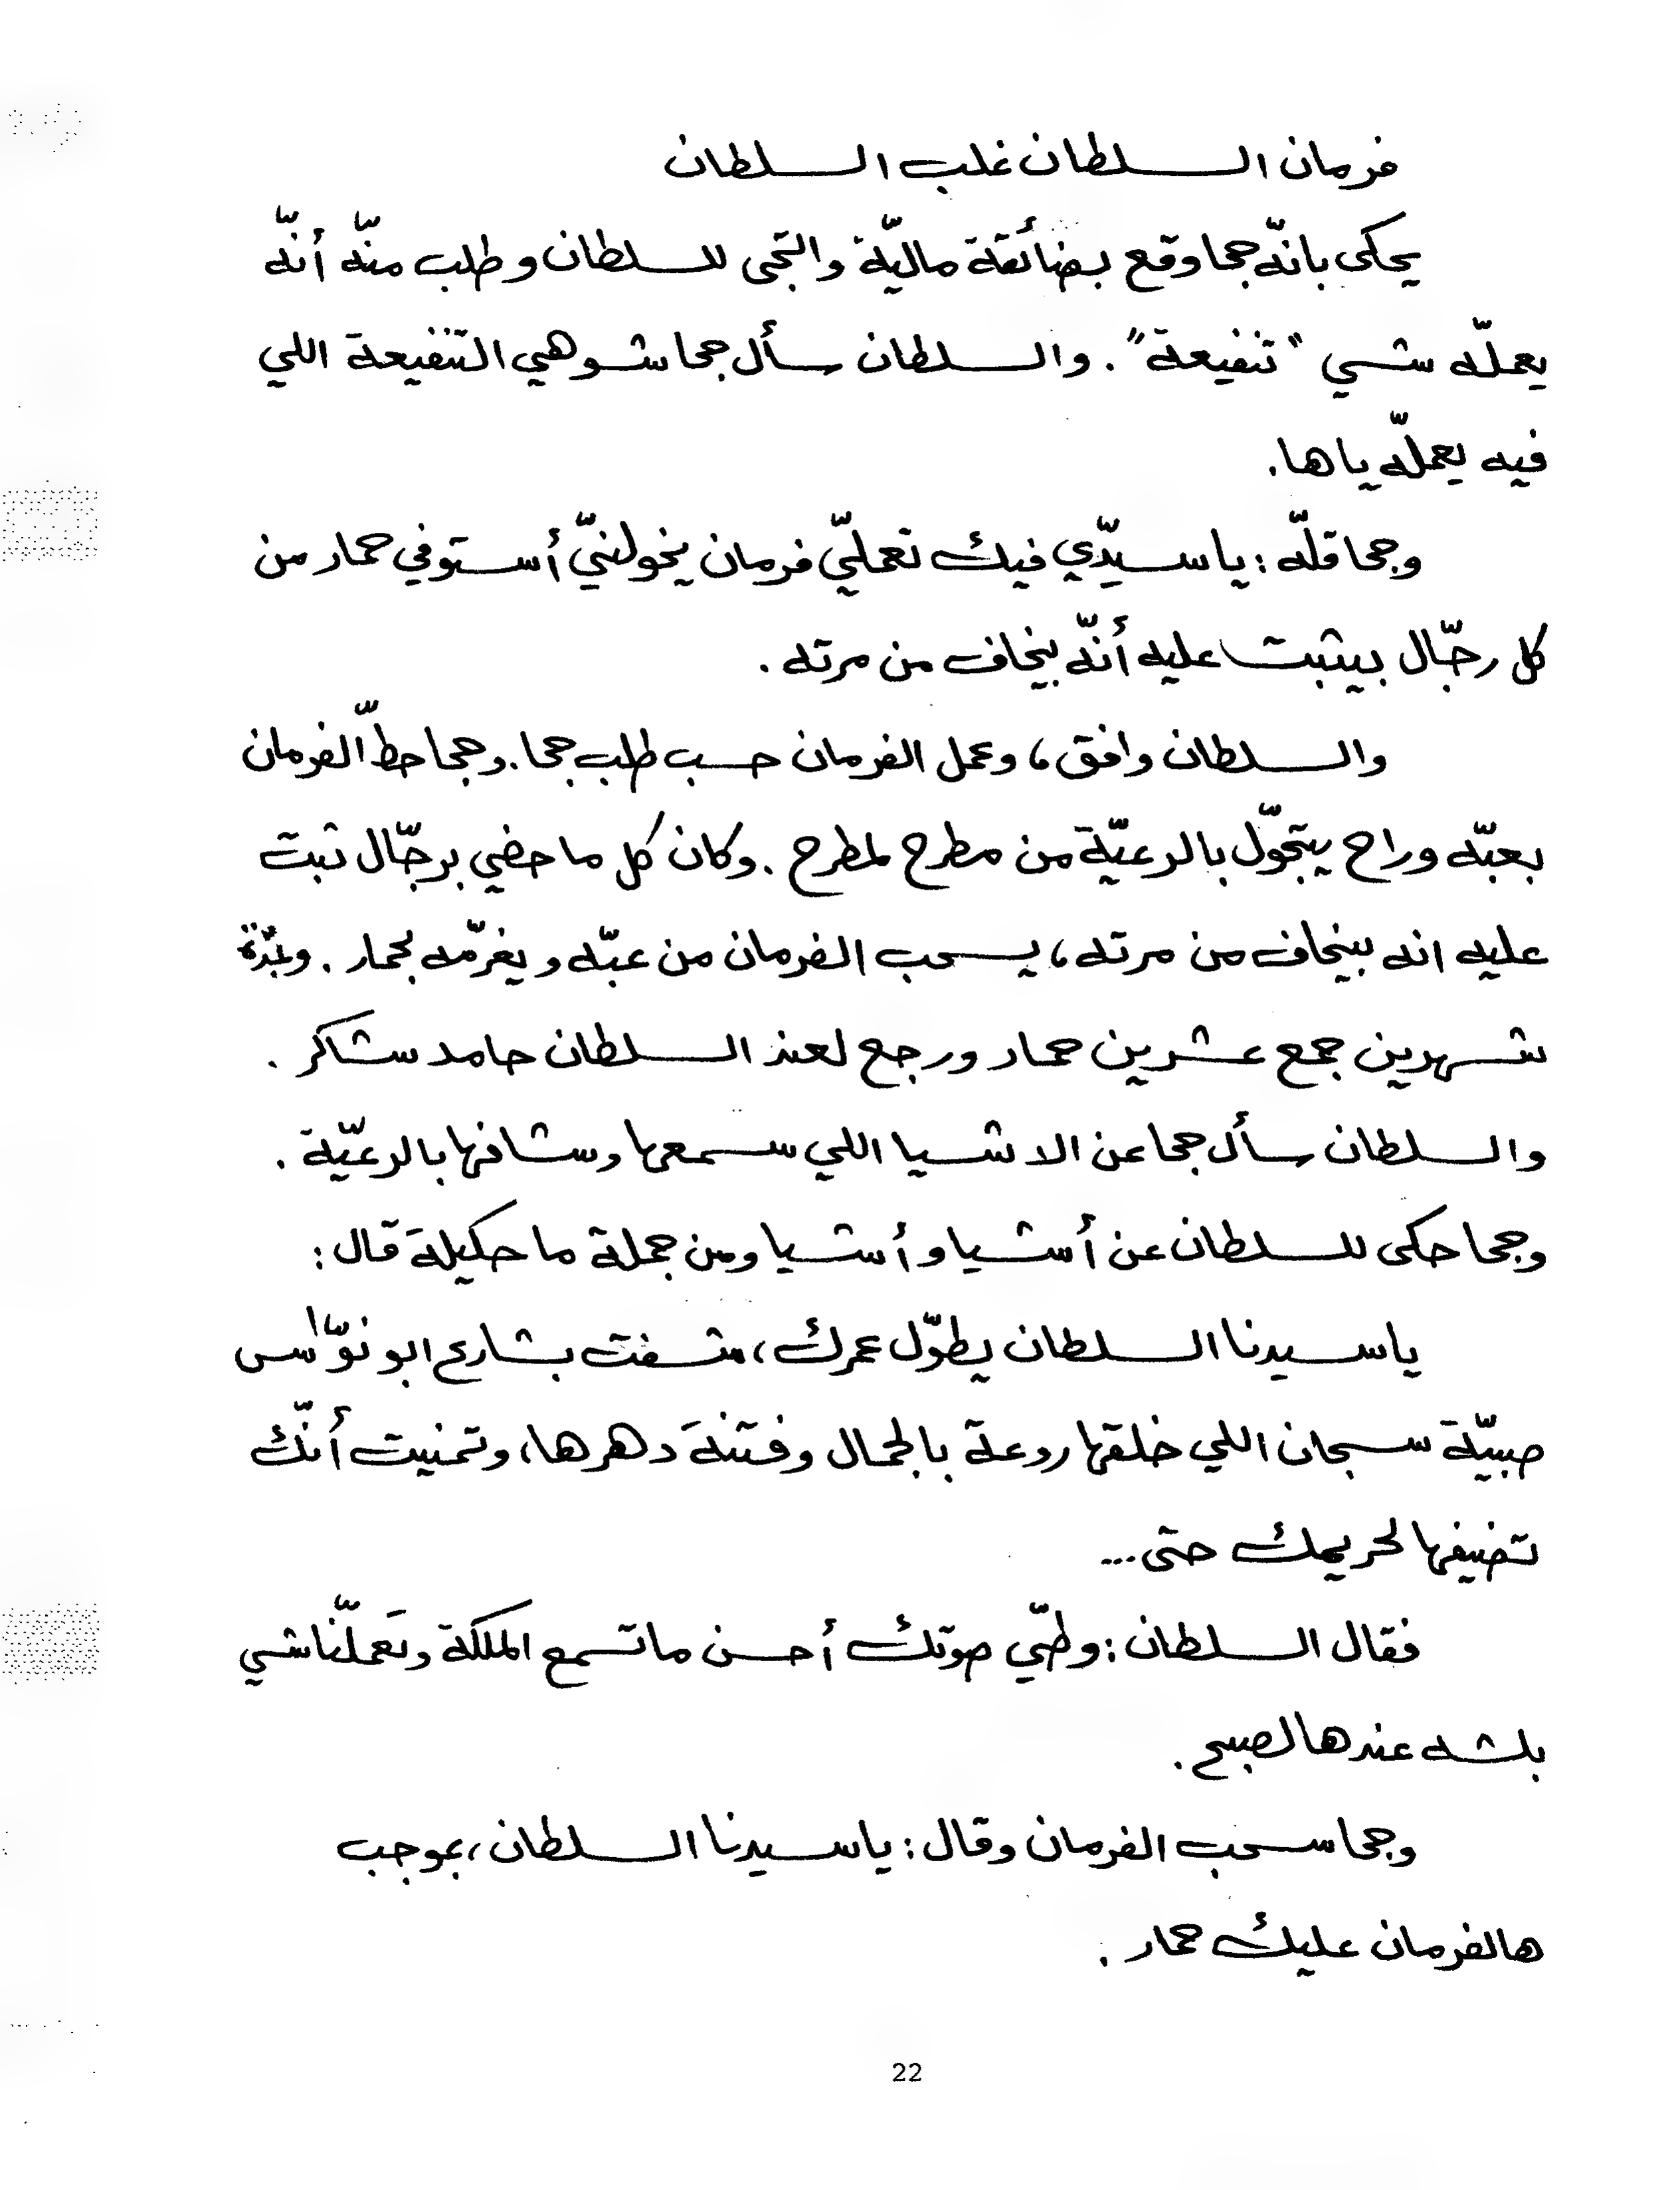 فرمان السلطان غلب السلطان
يحكى بانّه جحا وقع بضائقة ماليّة والتجى للسلطان وطلب منّه أنّه
يعملّه شي "تنفيعة". والسلطان سأل جحا شو هي التنفيعة اللي
فيه يعملّه ياها.
وجحا قلّه: يا سيّدي فيك تعمليّ فرمان يخولنيّ أستوفي حمار من
كل رجّال بيثبت عليه أنّه بيخاف من مرته.
والسلطان وافق، وعمل الفرمان حسب طلب جحا. وجحا حطّ الفرمان
بعبّه وراح يتجوّل بالرعيّة من مطرح لمطرح. وكان كل ما حضي برجّال ثبت
عليه انه بيخاف من مرته، يسحب الفرمان من عبّه ويغرّمه بحمار. وبمدّة
شهرين جمع عشرين حمار ورجع لعند السلطان حامد شاكر.
والسلطان سأل جحا عن الاشيا اللي سمعها وشافها بالرعيّة.
وجحا حكى للسلطان عن أشيا وأشيا ومن جملة ما حكيلهَ قال:
يا سيدنا السلطان يطوّل عمرك، شفت بشارع ابو نوّاس
صبيّة سبحان اللي خلقها روعة بالجمال وفتنهَ دهرها، وتمنيت أنّك
تضيفها لحريمك حتى...
فقال السلطان: وطّي صوتك أحسن ما تسمع الملكة وتَعملّنا شي
بلشه عند هالصبح.
وجحا سحب الفرمان وقال: يا سيدنا السلطان، بموجب
هالفرمان عليك حمار.
22